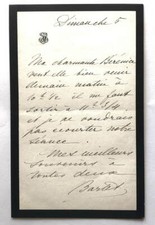 Dimanche 6
Ma charmante Bérénice
veut elle bien venir
demain matin à
10h
sortir à 11h 3/4
et je ne voudrais
pas écourter notre
séance.
Mes meilleurs
souvenirs à
toutes deux
Bartet